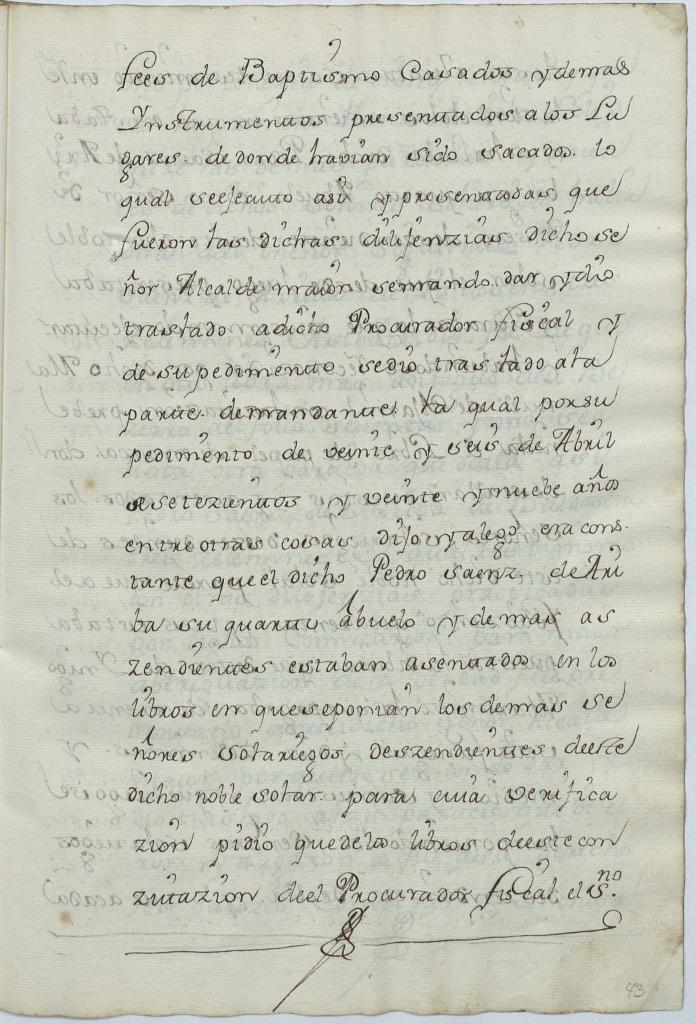 fees de Baptismo Casados y demas
Ynstrumentos presentados a los Lu
gares. de donde havian sido sacados. lo
qual se efecuto asi y presentadas que
fueron las dichas dilijenzias dicho se
ñor Alcalde maior se mando. dar y dio
traslado a dicho Procurador fiscal y
de su pedimento se dio traslado a la
parte. demandante. la qual por su
pedimento de veinte y seis de Abril
setezientos y veinte y nuebe años
entre otras cosas dijo y alego era cons.
tante que el dicho Pedro Saenz. de Arri
ba su quarto abuelo y demas as
zendientes estaban asentados en los
libros en que se ponian los demas se
ñores solariegos deszendientes de este
dicho noble solar. para cuia verifica
zion pidio que de los libros de este con
zitazion de el Procurador fiscal, el S.no
43